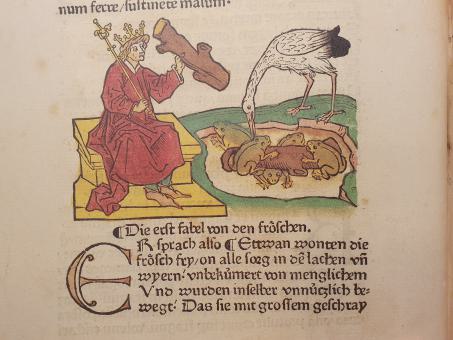 num ferre/ sustinete malum.
¶Die erst fabel von den fröschen.
ER sprach also ¶Etwan wonten die
frösch fry/ on alle sorg in dē lachen vñ
wyern/ vnbekümert von menglichem
Vnd wurden inselber vnnüczlich be-
wegt/ Das sie mit grossem geschray